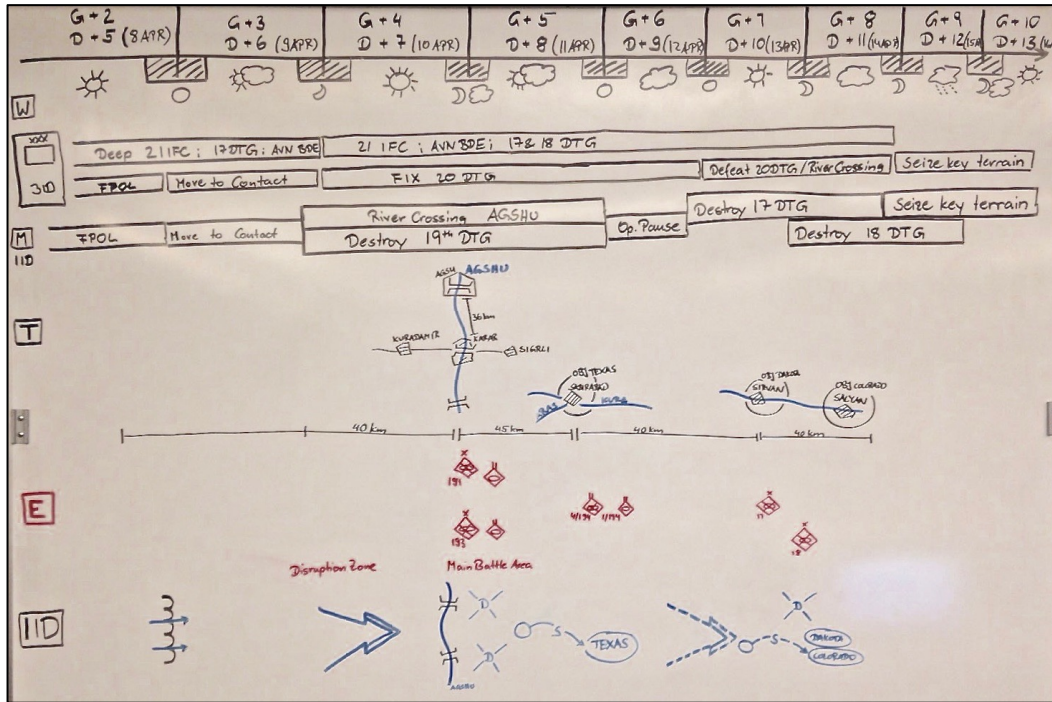 G+2
D+5 (8APR)
G+3
D+6 (9APR)
G+4
D+7 (10APR)
G+5
D+8 (11APR)
G+6
D+9 (12APR)
G+7
D+10 (13APR)
G+8
D+11 (14APR)
G+9
D+12
G+10
D+13
W
XXX
3ID
Deep 21 IFC; 17DTG; AVN BDE
21 IFC; AVN BDE; 17&18 DTG
FPOL
Move to Contact
FIX 20 DTG
Defeat 20DTG/River Crossing
Seize key terrain
M
IID
FPOL
Move to Contact
River Crossing AGSHU
Destroy 19th DTG
Op. Pause
Destroy 17 DTG
Destroy 18 DTG
Seize key terrain
T
AGSH
AGSHU
36km
KURADAMIR
KARAR
SIGIRLI
OBJ TEXAS
ARAS
KURA
OBJ DAKOTA
SIRVAN
OBJ COLORADO
SALYAN
40km
45km
40km
40km
E
X
191
II
X
193
II
II
4/194
II
1/194
X
17
X
18
Disruption Zone
Main Battle Area
IID
D
D
S
TEXAS
AGSHU
D
S
DAKOTA
COLORADO